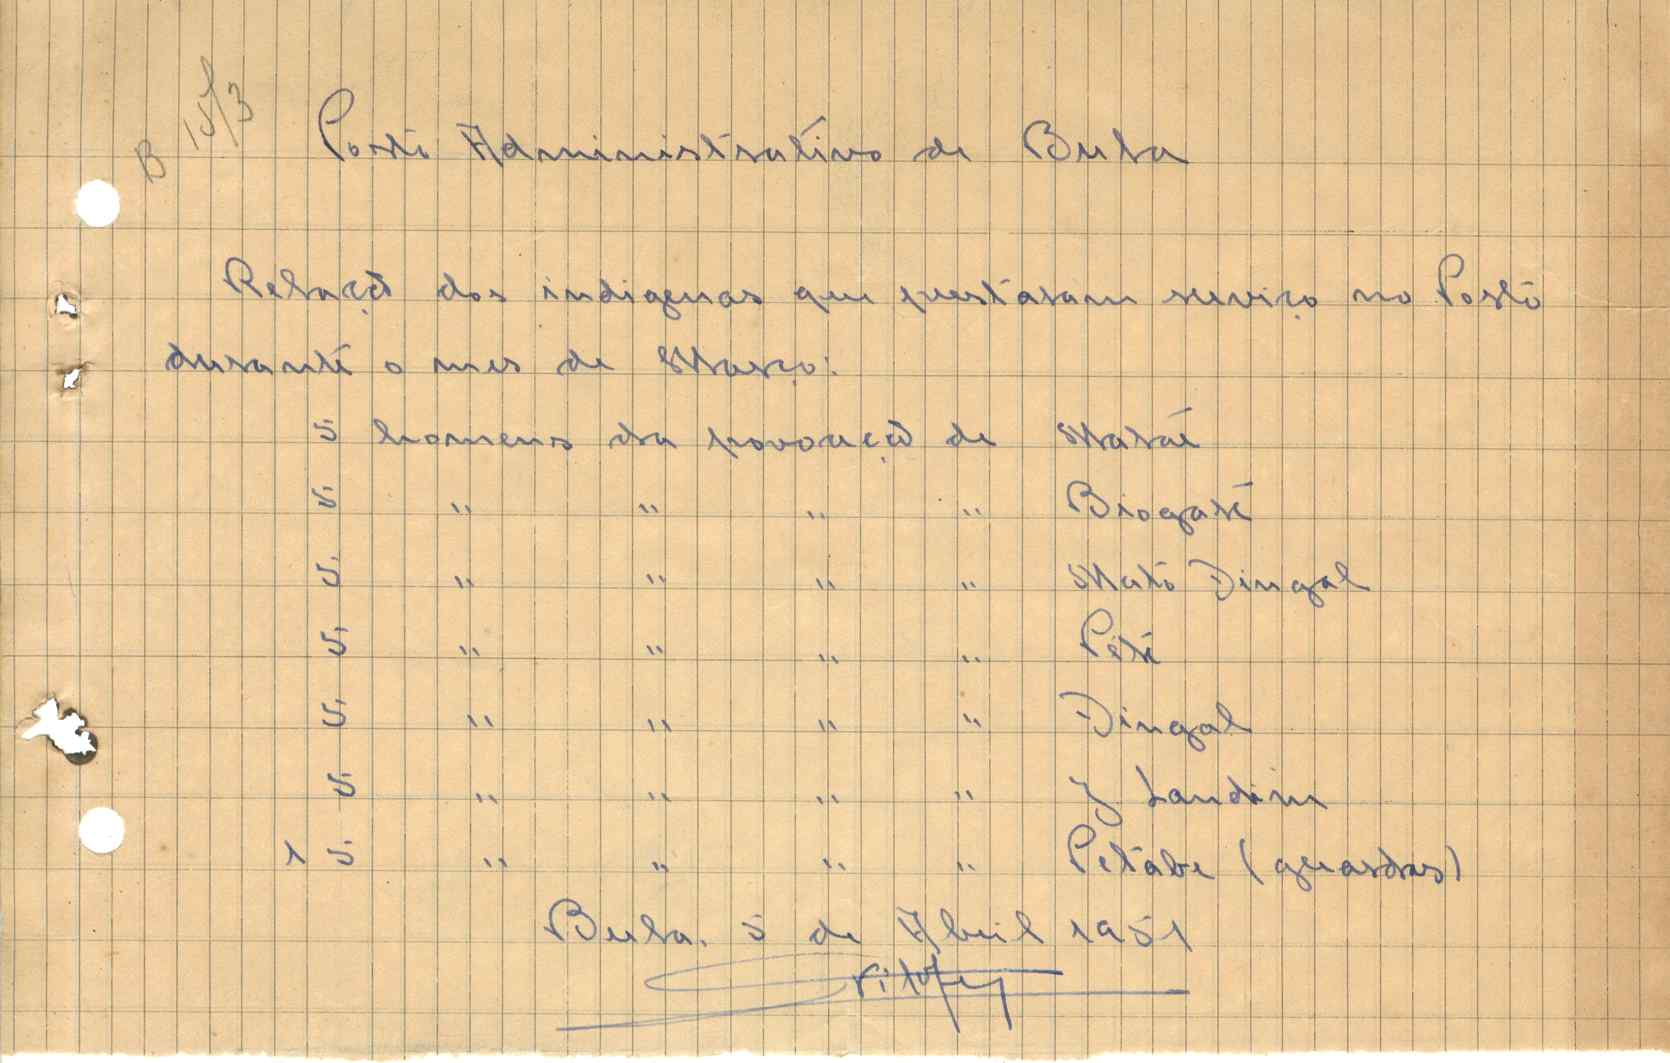 B 15/3
Posto Administrativo de Bula
Relação dos indigenas que prestaram serviço no Posto
durante o mes de Março:
5 homens da povoação de
5 " " " " Biogate
5 " " " " Mato Dingal
5 " " " " Pete
5 " " " " Dingal
5 " " " " J Landim
15 " " " " Petabe (guardas)
Bula. 5 de Abril 1951